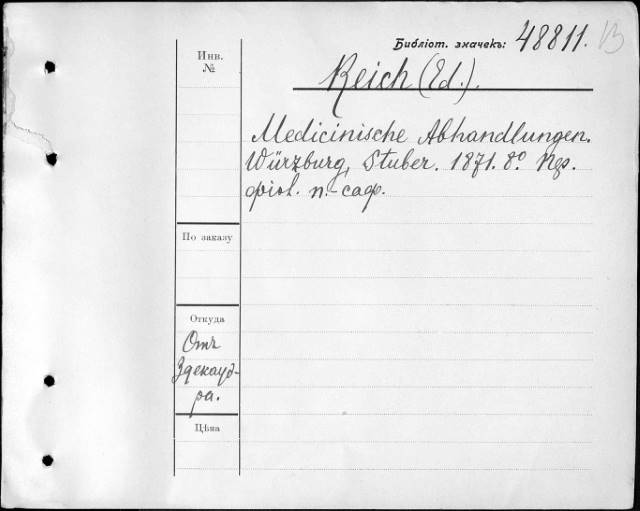 Библіот. значекъ: 48811. B
Инв.
№
Reich (Ed.).
Medicinische Abhandlungen.
Würzburg, Stuber. 1871. 8º
п. саф.
По заказу
Откуда
Отъ
Здекауэ-
ра.
Цѣна